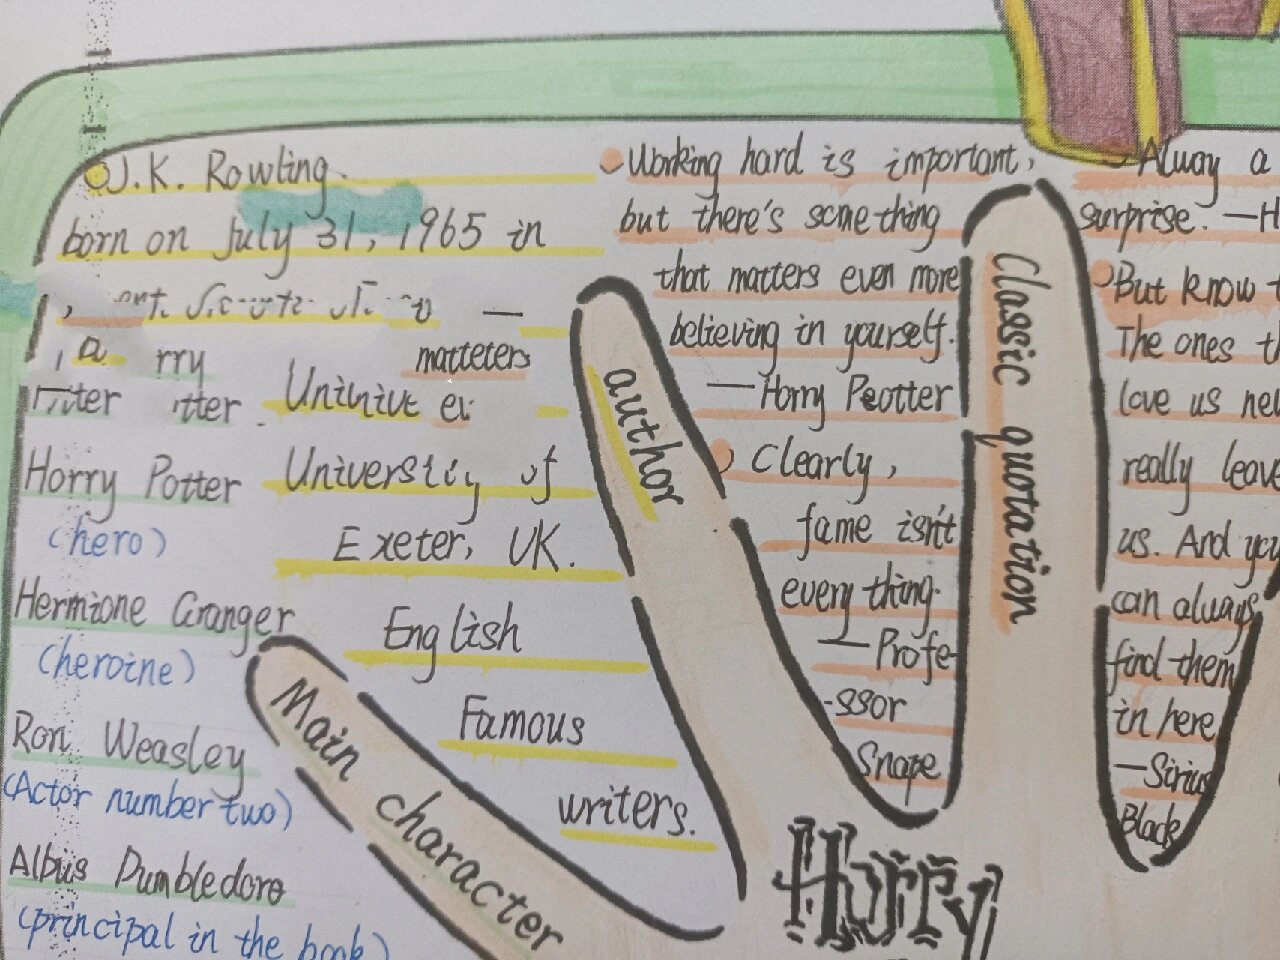 J.K. Rowling.
born on July 31, 1965 in
matteters
Horry Potter
(hero)
Hermione Granger
(heroine)
Ron Weasley
(Actor number two)
Albus Dumbledoro
(principal in the book)
University of
Exeter, UK.
English
Famous
writers.
Main character
author
Working hard is important,
but there's something
that matters even more
believing in yourself.
—Horry Peotter
Clearly,
fame isn't
every thing.
—Profe-
-ssor
Snape
Classic quotation
Alway a
surprise. —H
But know t
The ones t
love us nel
really leave
us. And you
can always
find them
in here
—Sirius
Black
Horry